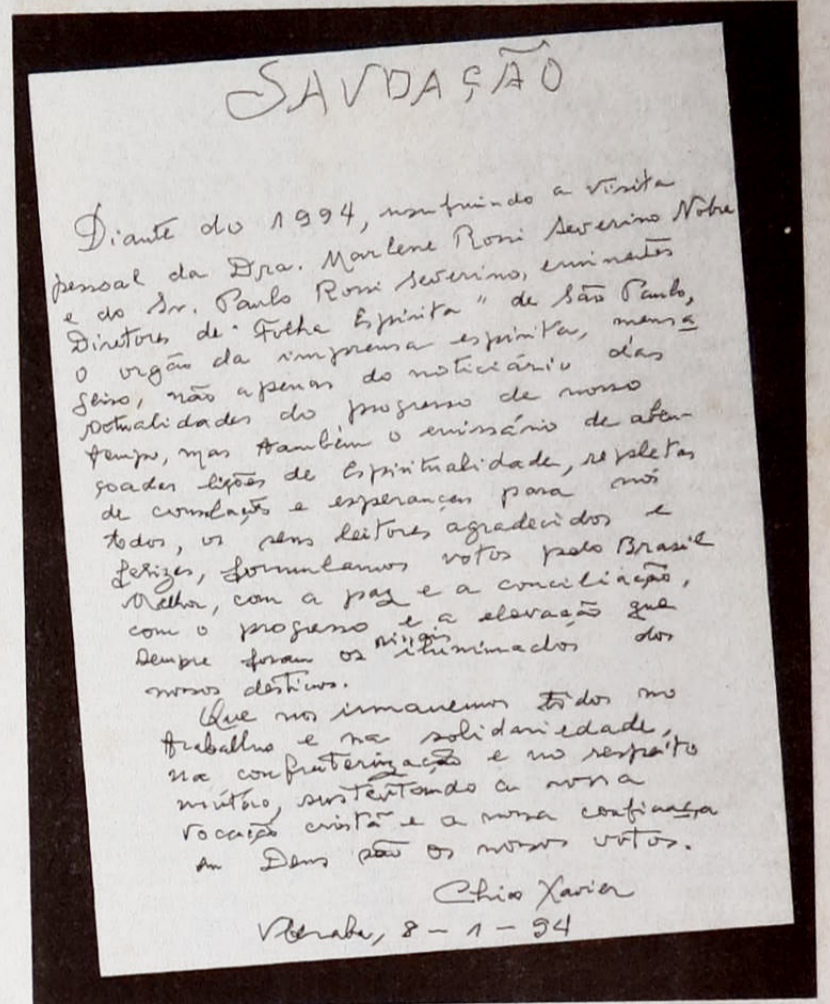 SAUDAÇÃO
Diante do 1994, usufruindo a visita
pessoal da Dra. Marlene Rossi Severino Nobre
e do Sr. Paulo Rossi Severino, eminentes
Diretores de "Folha Espírita" de São Paulo,
o orgão da imprensa espírita, mensa
geiro, não apenas do noticiário das
atualidades do progresso de nosso
tempo, mas também o emissário de aben-
çoadas lições de Espiritualidade, repletas
de consolação e esperanças para nós
todos, os seus leitores agradecidos e
felizes, formulamos votos pelo Brasil
Melhor, com a paz e a conciliação,
com o progresso e a elevação que
sempre foram os signos iluminados dos
nossos destinos.
Que nos irmanemos todos no
trabalho e na solidariedade,
na confraternização e no respeito
mútuo, sustentando a nossa
vocação cristã e a nossa confiança
em Deus são os nossos votos.
Chico Xavier
Uberaba, 8 - 1 - 94